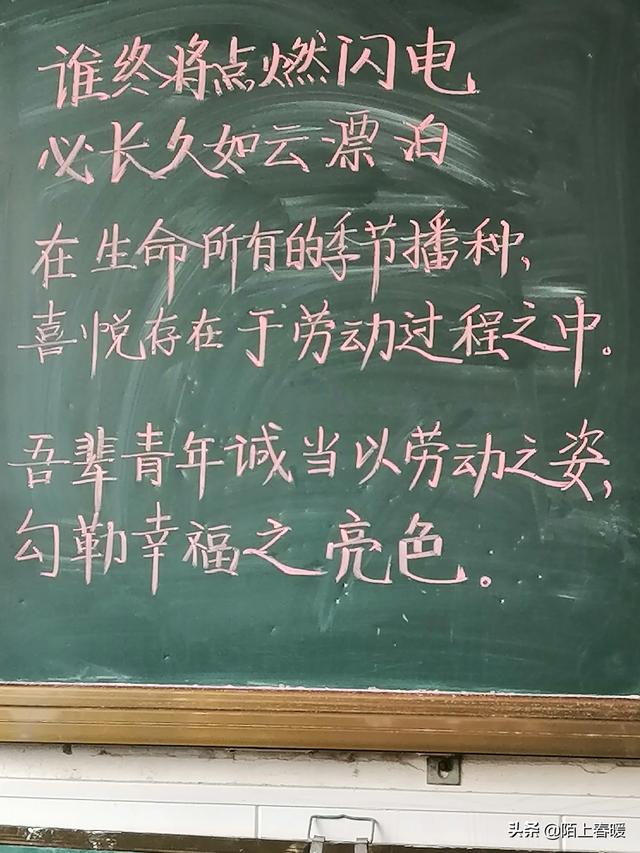 谁终将点燃闪电
必长久如云漂泊
在生命所有的季节播种,
喜悦存在于劳动过程之中。
吾辈青年诚当以劳动之姿,
勾勒幸福之亮色。
头条 @陌上春暖